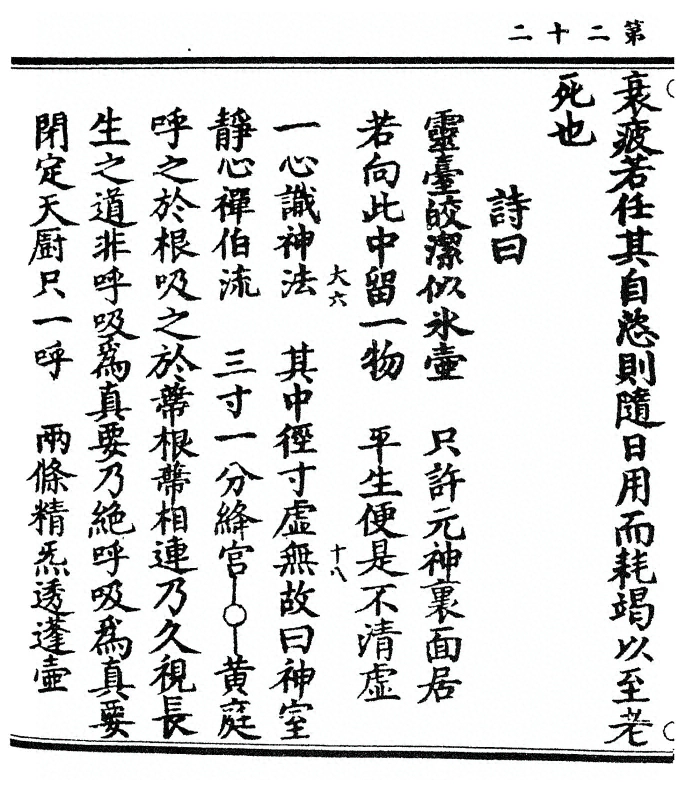 第二十二
衰疲若任其自慾則隨日用而耗竭以至老
死也
詩曰
靈臺皎潔似氷壺 只許元神裏面居
若向此中留一物 平生便是不清虛
大六
十八
一心識神法 其中徑寸虛無故曰神室
靜心禪伯流 三寸一分絳宮—○—黄庭
呼之於根吸之於蔕根蔕相連乃久視長
生之道非呼吸爲真要乃絶呼吸爲真要
閉定天厨只一呼 兩條精炁透蓬壺